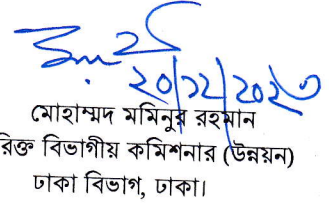 ২০/১২/২০২৩
মোহাম্মদ মমিনুর রহমান
রিক্ত বিভাগীয় কমিশনার (উন্নয়ন)
ঢাকা বিভাগ, ঢাকা।